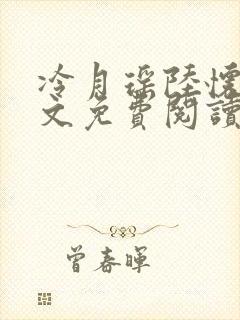 冷月琛陸懷
文免費閱讀
曾春暉